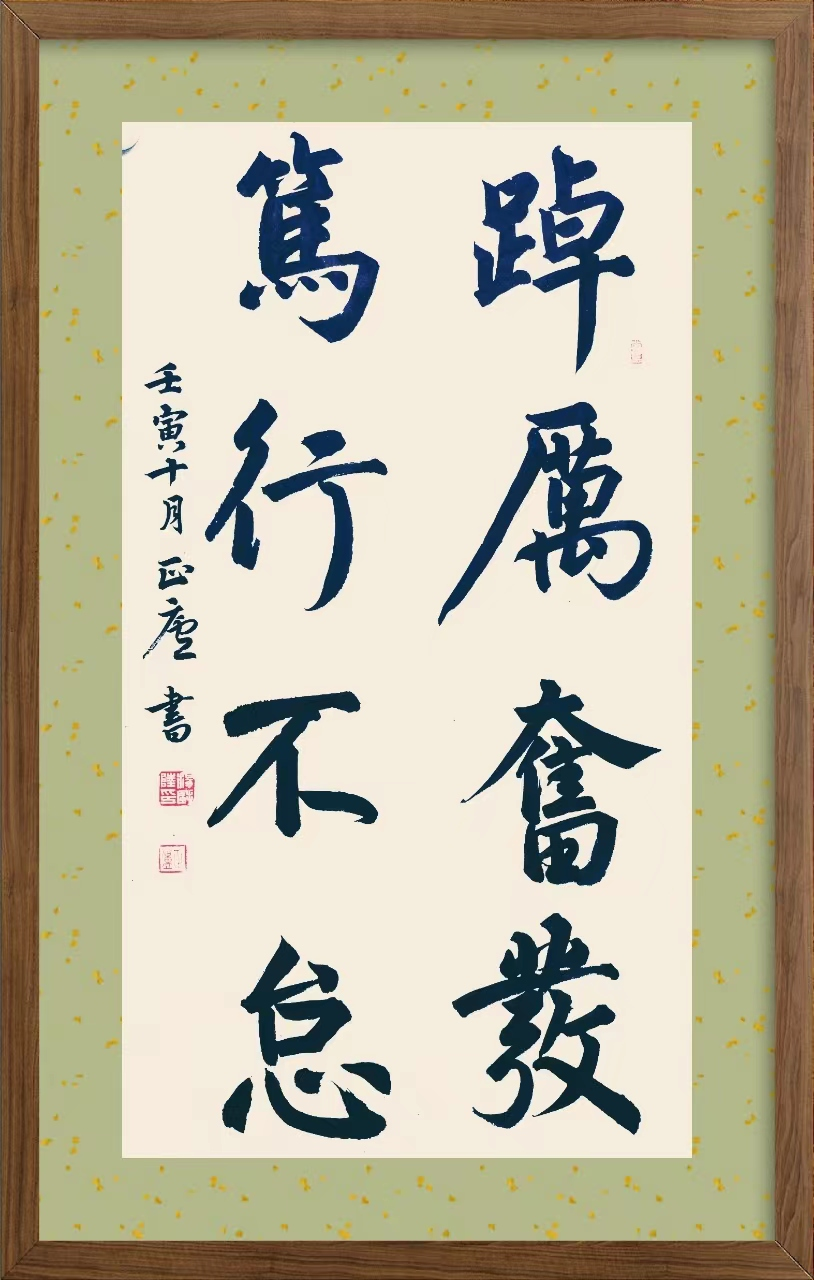 踔厲奮發
篤行不怠
壬寅十月正廬書